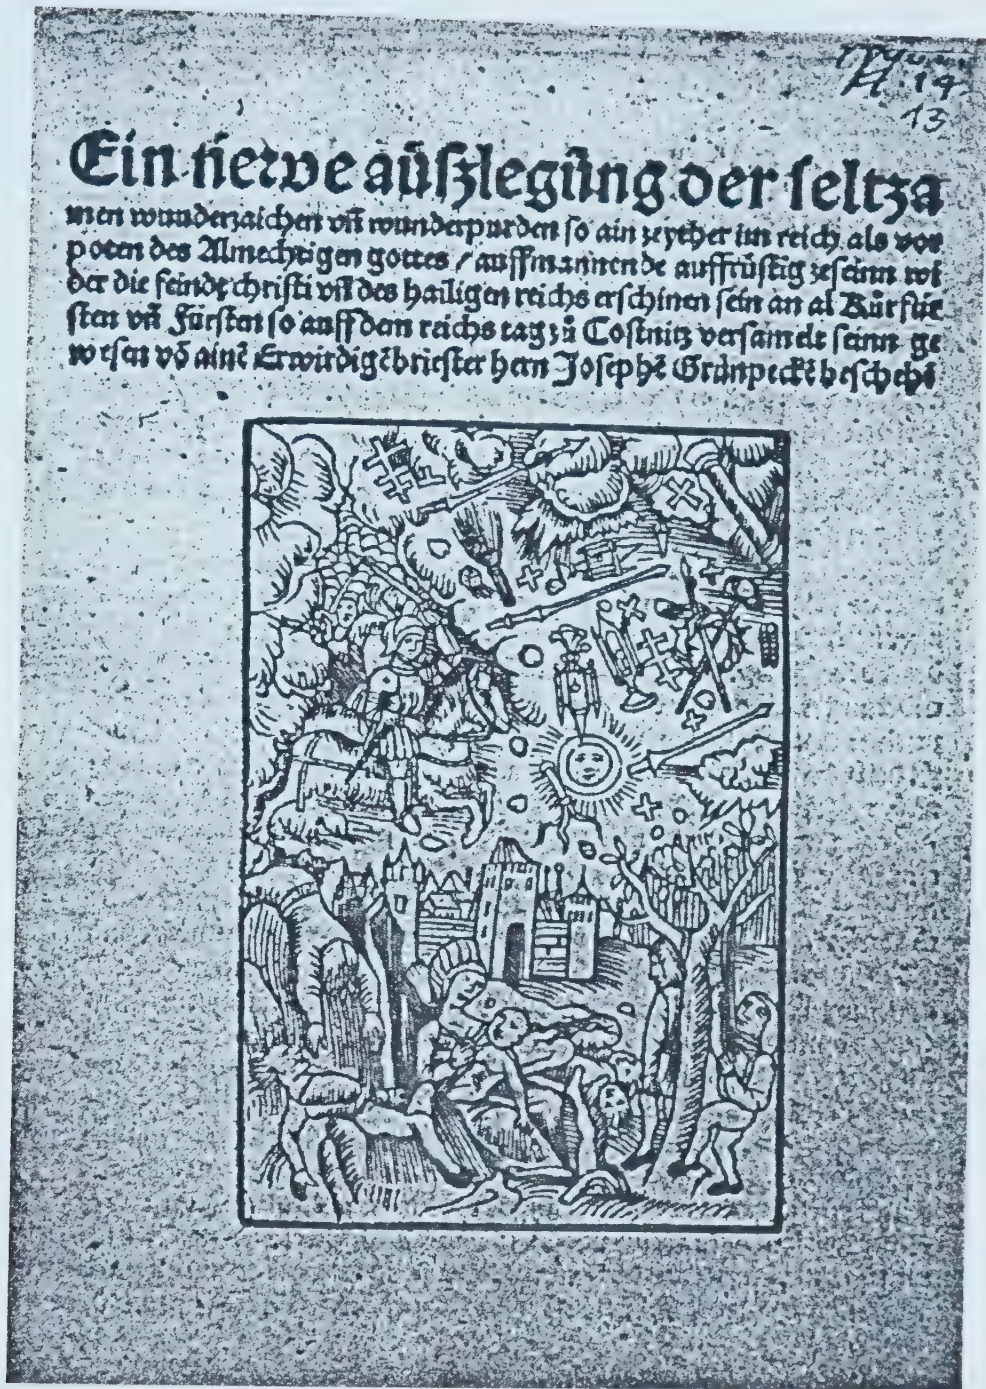 14
13
Ein newe außlegung der seltza
men wunderzaichen vñ wunderpurden so ain zeyther im reich als vor
poten des Almechtigen gottes / auffmannende auffrüstig zeseinn wi
der die feinde christi vñ des hailigen reichs erschinen sein an al Kürfür
sten vñ Fürsten so auff dem reichs tag zů Costnitz versamelt seinn ge
wesen võ ainē Erwirdigē briester hern Josephē Grünpeckē beschehē